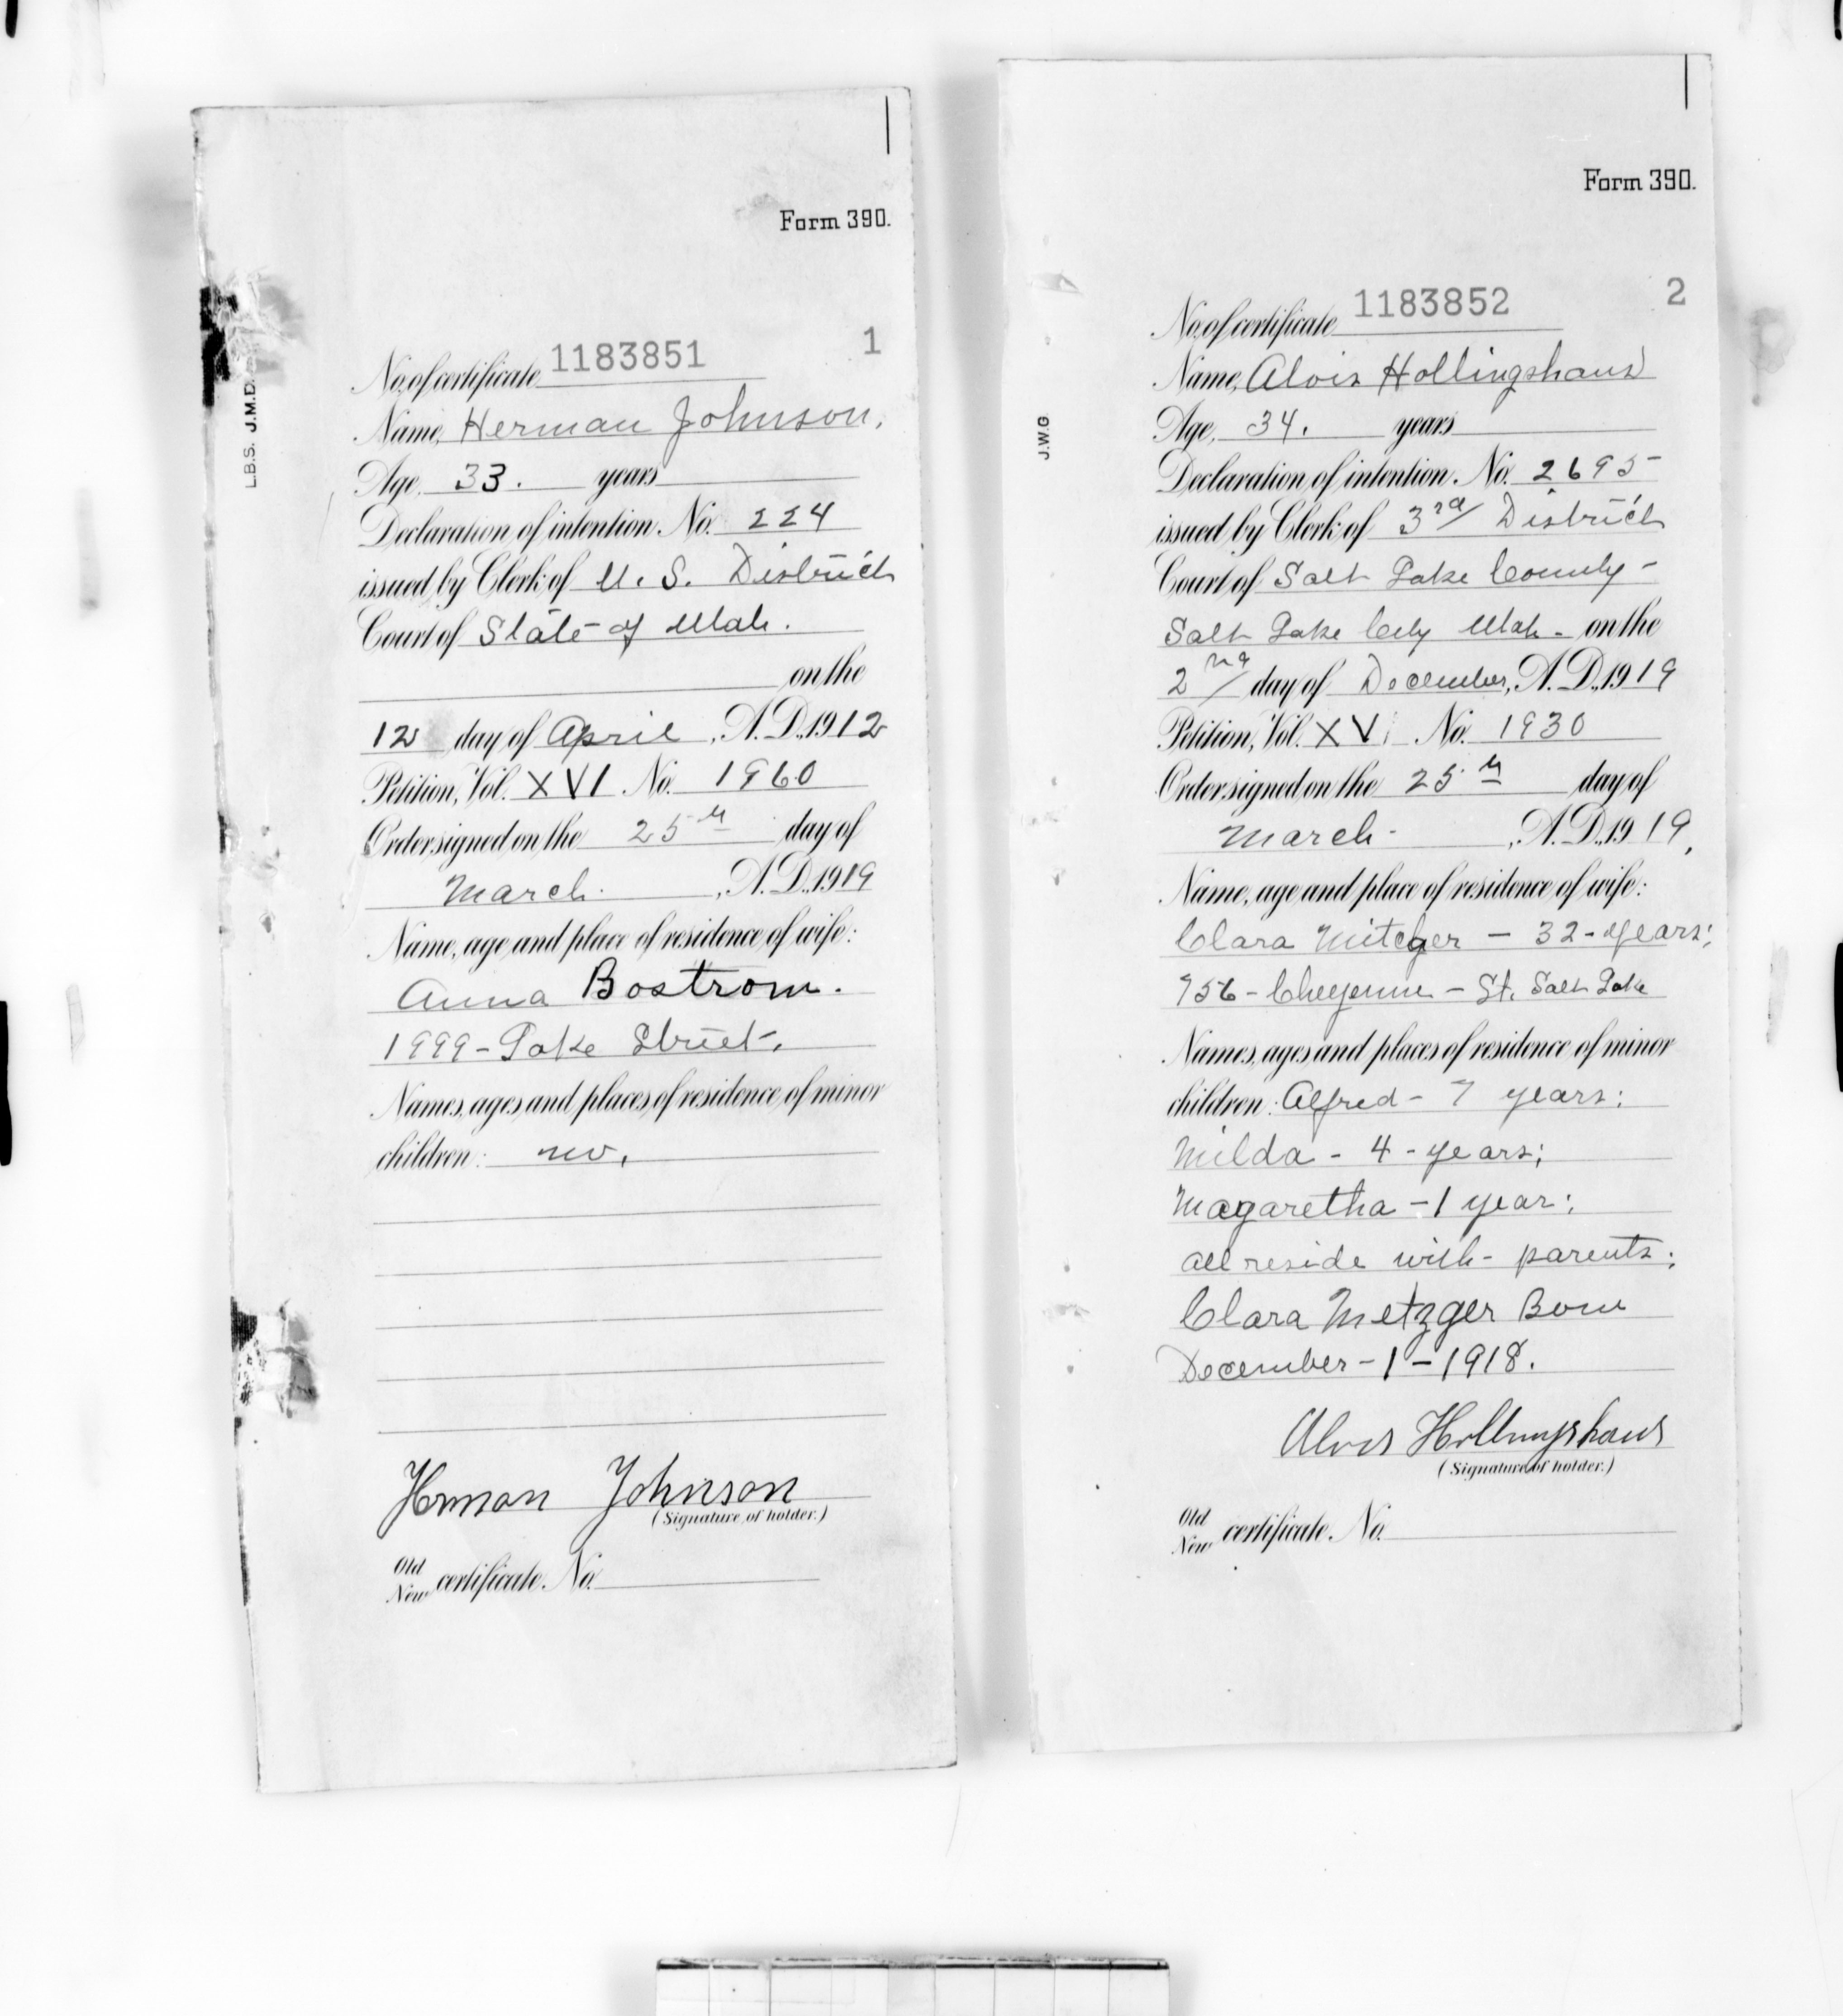 Form 390.
1
L.B.S. J.M.D.
No. of certificate 1183851
Name, Herman Johnson.
Age, 33. years
Declaration of intention, No. 224
issued by Clerk of U. S. District
Court of State of Utah.
on the
12 day of April, A. D., 1912
Petition, Vol. XVI No. 1960
Order signed on the 25th day of
March. , A. D., 1919
Name, age and place of residence of wife:
Anna Bostrom.
1999 - Lake Street.
Names, ages and places of residence of minor
children: no.
Herman Johnson
(Signature of holder.)
Old
New certificate, No.
Form 390.
2
J.W.G
No. of certificate 1183852
Name, Alois Hollingshaus
Age, 34. years
Declaration of intention, No. 2695
issued by Clerk of 3rd District
Court of Salt Lake County -
Salt Lake City Utah - on the
2nd day of December, A. D., 1919
Petition, Vol. XVI No. 1930
Order signed on the 25th day of
March - , A. D., 1919.
Name, age and place of residence of wife:
Clara Mitcger - 32 - years;
756 - Cheyenne - St. Salt Lake
Names, ages and places of residence of minor
children: Alfred - 7 years;
Milda - 4 - years;
Magaretha - 1 year;
all reside with - parents;
Clara Metzger Born
December - 1 - 1918.
Alois Hollingshaus
(Signature of holder.)
Old
New certificate, No.